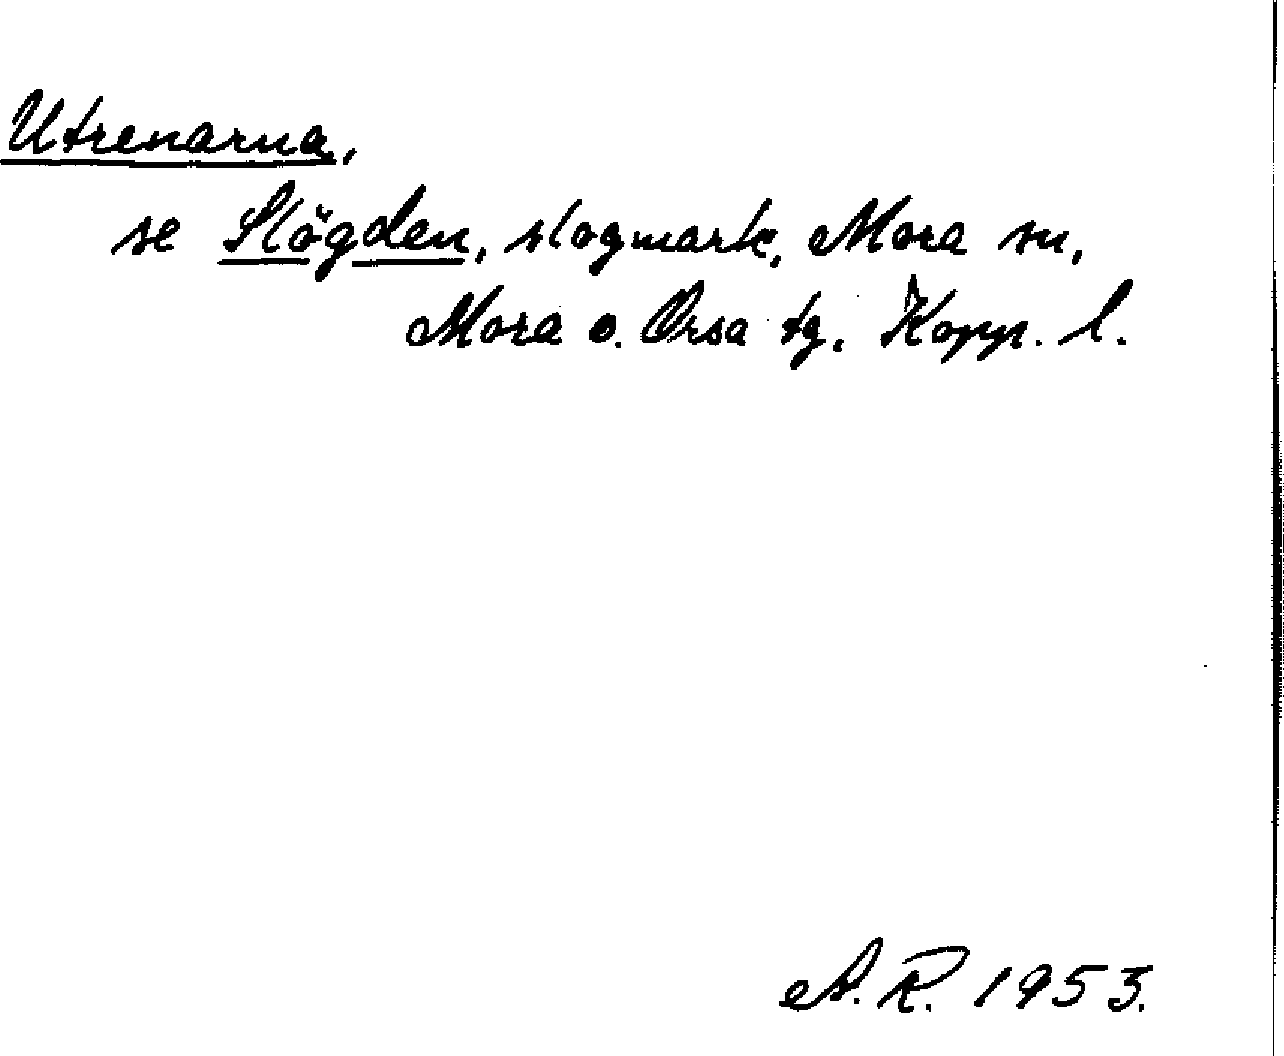 Utrenarna,
se Slögden, slogmark, Mora sn,
Mora o. Orsa tg, Kopp. l.
A. R. 1953.